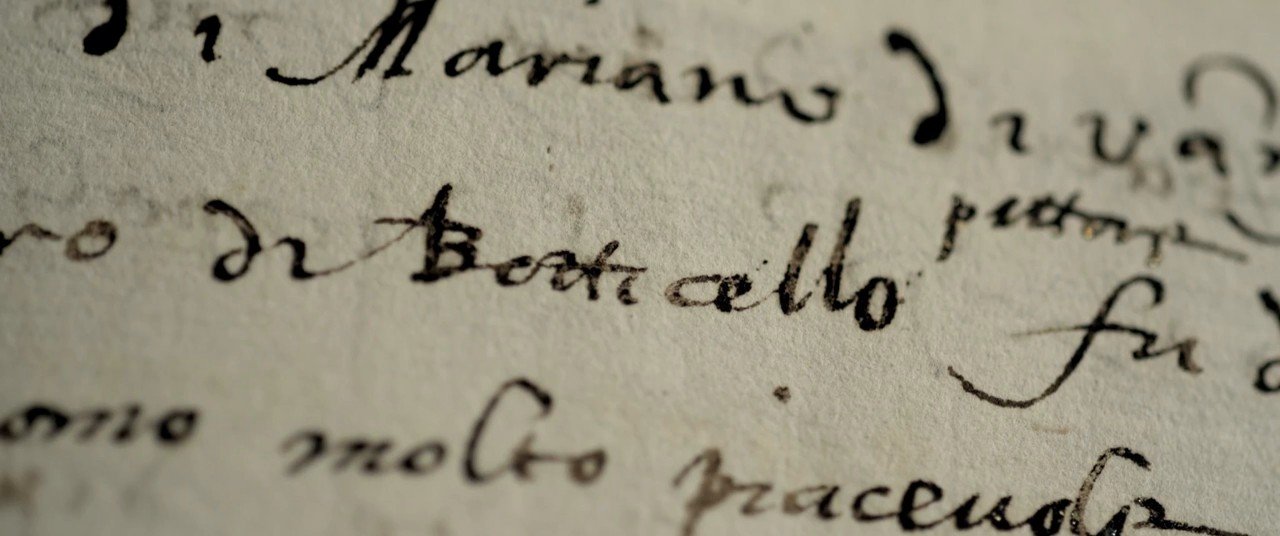 di Mariano di va
ro di Botticello pittore fu d
omo molto piaceuole